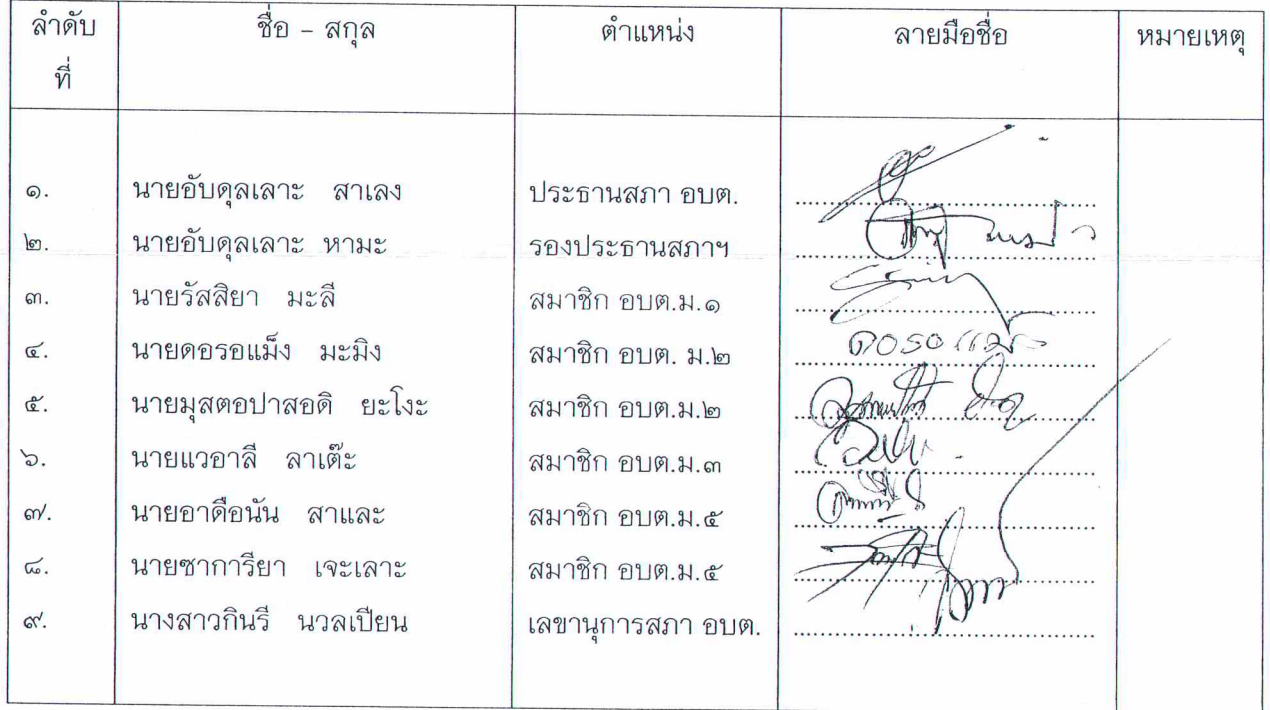 ลำดับ ชื่อ - สกุล ตำแหน่ง ลายมือชื่อ หมายเหตุ
ที่
๑. นายอับดุลเลาะ สาเลง ประธานสภา อบต.
๒. นายอับดุลเลาะ หามะ รองประธานสภาฯ
๓. นายรัสสิยา มะลี สมาชิก อบต.ม.๑
๔. นายดอรอแม็ง มะมิง สมาชิก อบต. ม.๒ ดอรอแม็ง
๕. นายมุสตอปาสอดิ ยะโงะ สมาชิก อบต.ม.๒
๖. นายแวอาลี ลาเต๊ะ สมาชิก อบต.ม.๓
๗. นายอาดือนัน สาและ สมาชิก อบต.ม.๕
๘. นายซาการียา เจะเลาะ สมาชิก อบต.ม.๕
๙. นางสาวกินรี นวลเปียน เลขานุการสภา อบต.